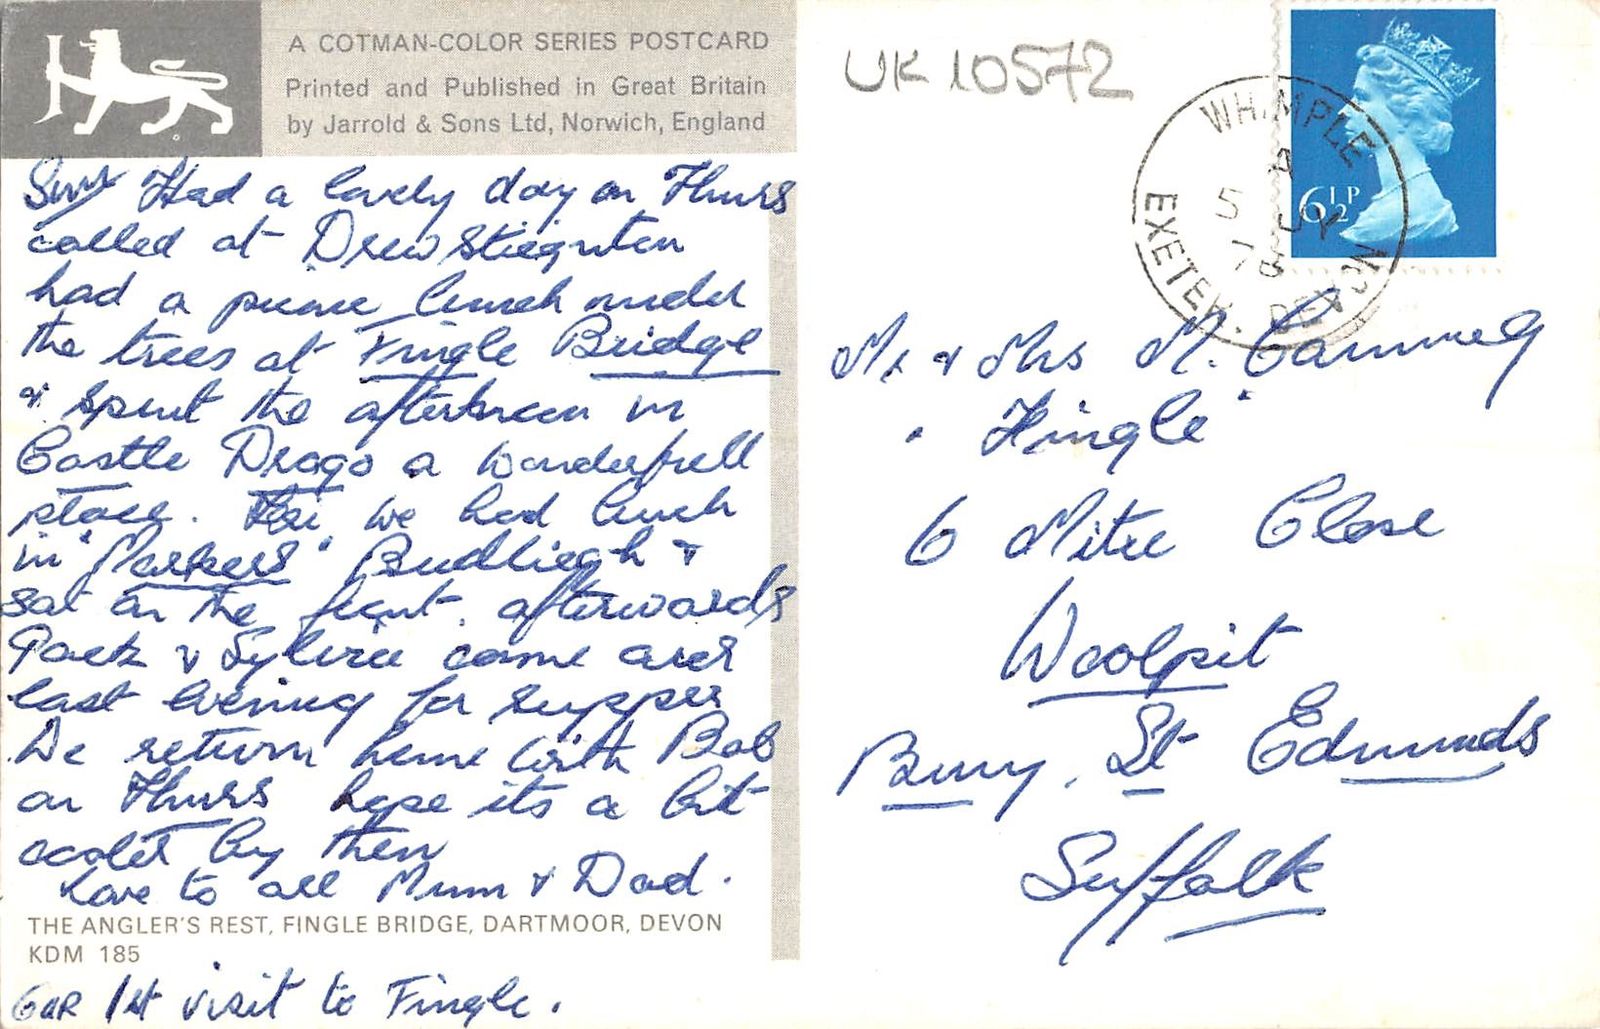 A COTMAN-COLOR SERIES POSTCARD
Printed and Published in Great Britain
by Jarrold & Sons Ltd, Norwich, England
Sun Had a lovely day on Thurs
called at Drewstiegnton
had a picnic lunch under
the trees at Fingle Bridge
& spent the afternoon in
Castle Drogo a wonderfull
place. Fri we had lunch
in "Markers" Budliegh &
sat on the front. afterwards
& Sylvia came over
last evening for supper
We return home with Bob
on Thurs hope its a bit
cooler by then
Love to all Mum & Dad.
THE ANGLER'S REST, FINGLE BRIDGE, DARTMOOR, DEVON
KDM 185
Our 1st visit to Fingle.
UK 10572
WHIMPLE
A
5 JY
76
EXETER. DEVON
6½P
Mr & Mrs M.
"Fingle"
6 Mitre Close
Woolpit
Bury. St Edmunds
Suffolk